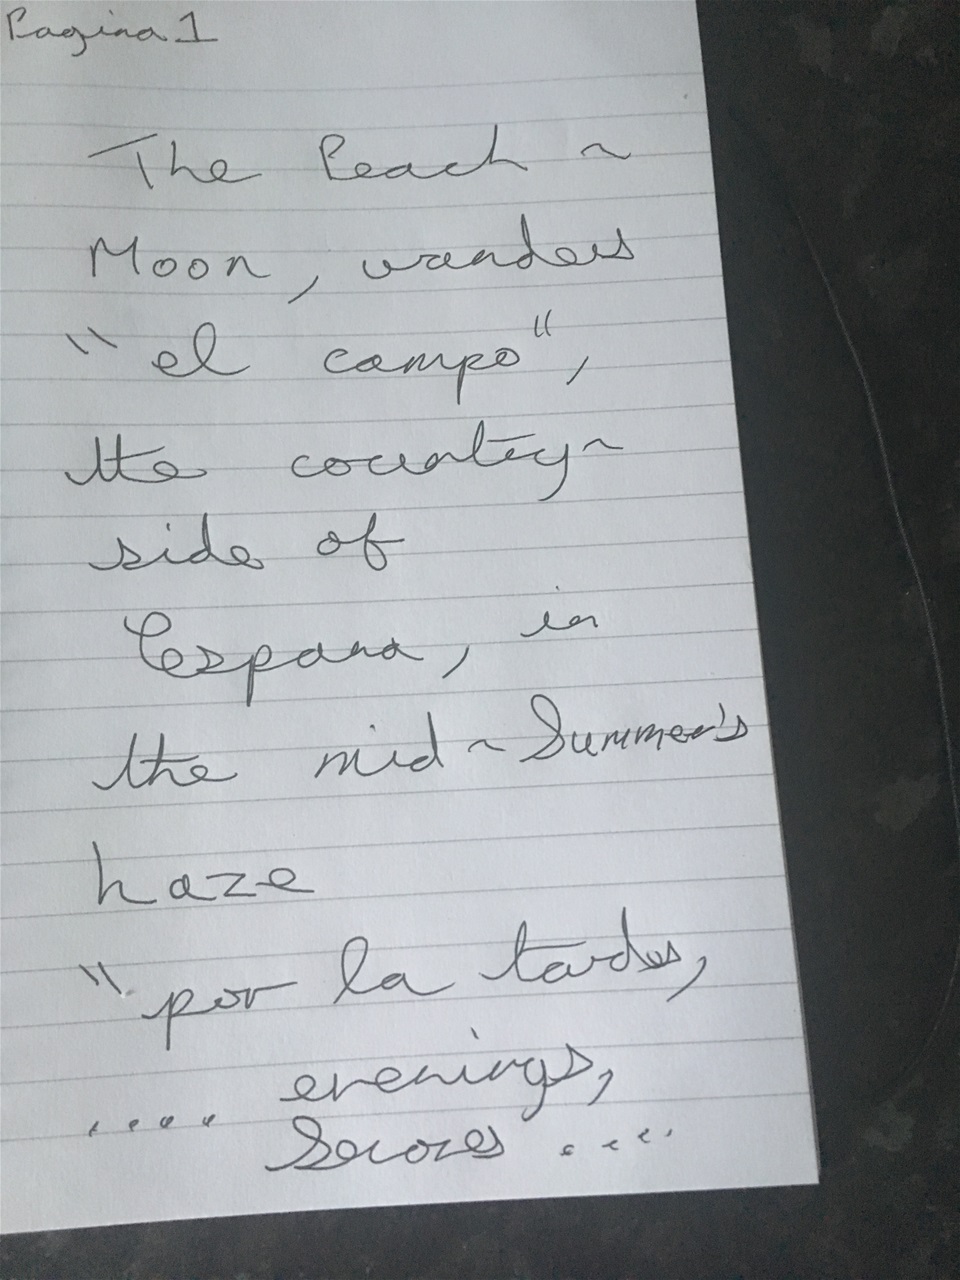 Pagina 1
The Peach ~
Moon, wanders
"el campo",
the country~
side of
Espana, in
the mid~Summer's
haze
"por la tardes,
.... evenings,
....